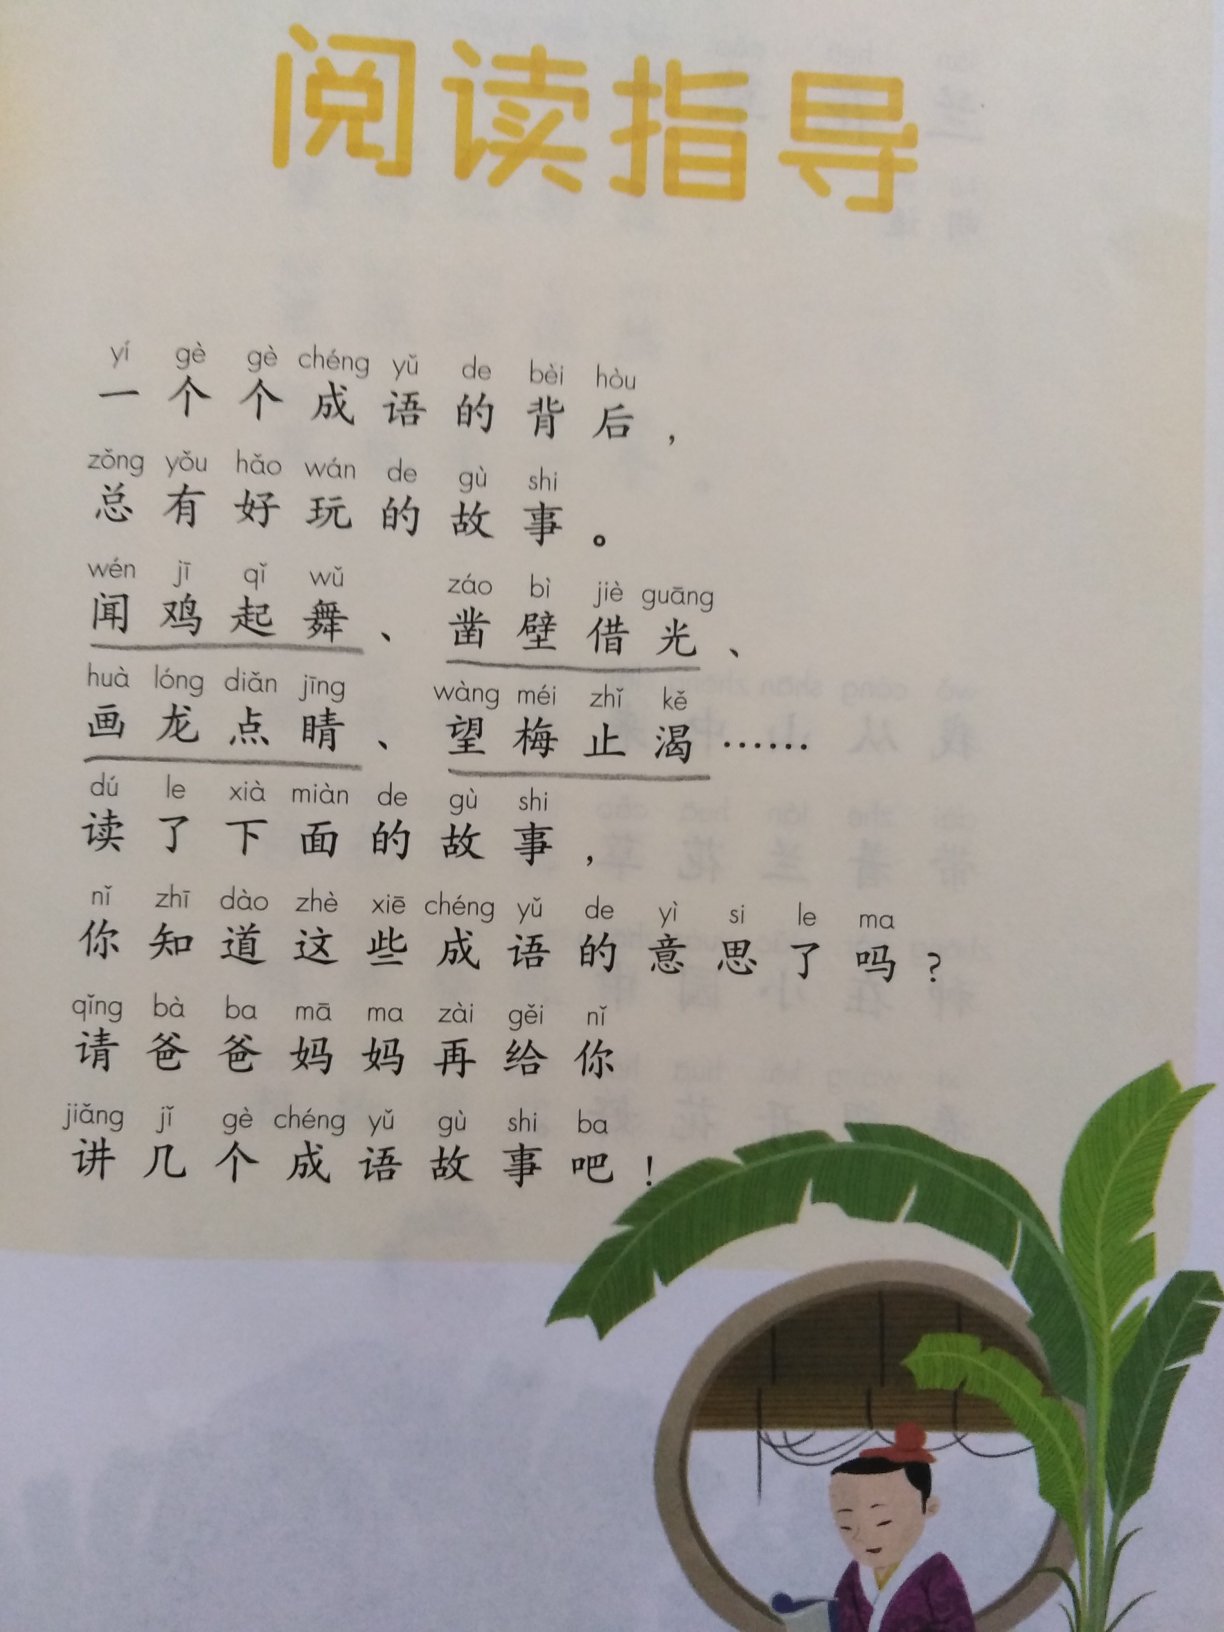 阅读指导
yí gè gè chéng yǔ de bèi hòu
一个个成语的背后，
zǒng yǒu hǎo wán de gù shi
总有好玩的故事。
wén jī qǐ wǔ záo bì jiè guāng
闻鸡起舞、凿壁借光、
huà lóng diǎn jīng wàng méi zhǐ kě
画龙点睛、望梅止渴……
dú le xià miàn de gù shi
读了下面的故事，
nǐ zhī dào zhè xiē chéng yǔ de yì si le ma
你知道这些成语的意思了吗？
qǐng bà ba mā ma zài gěi nǐ
请爸爸妈妈再给你
jiǎng jǐ gè chéng yǔ gù shi ba
讲几个成语故事吧！